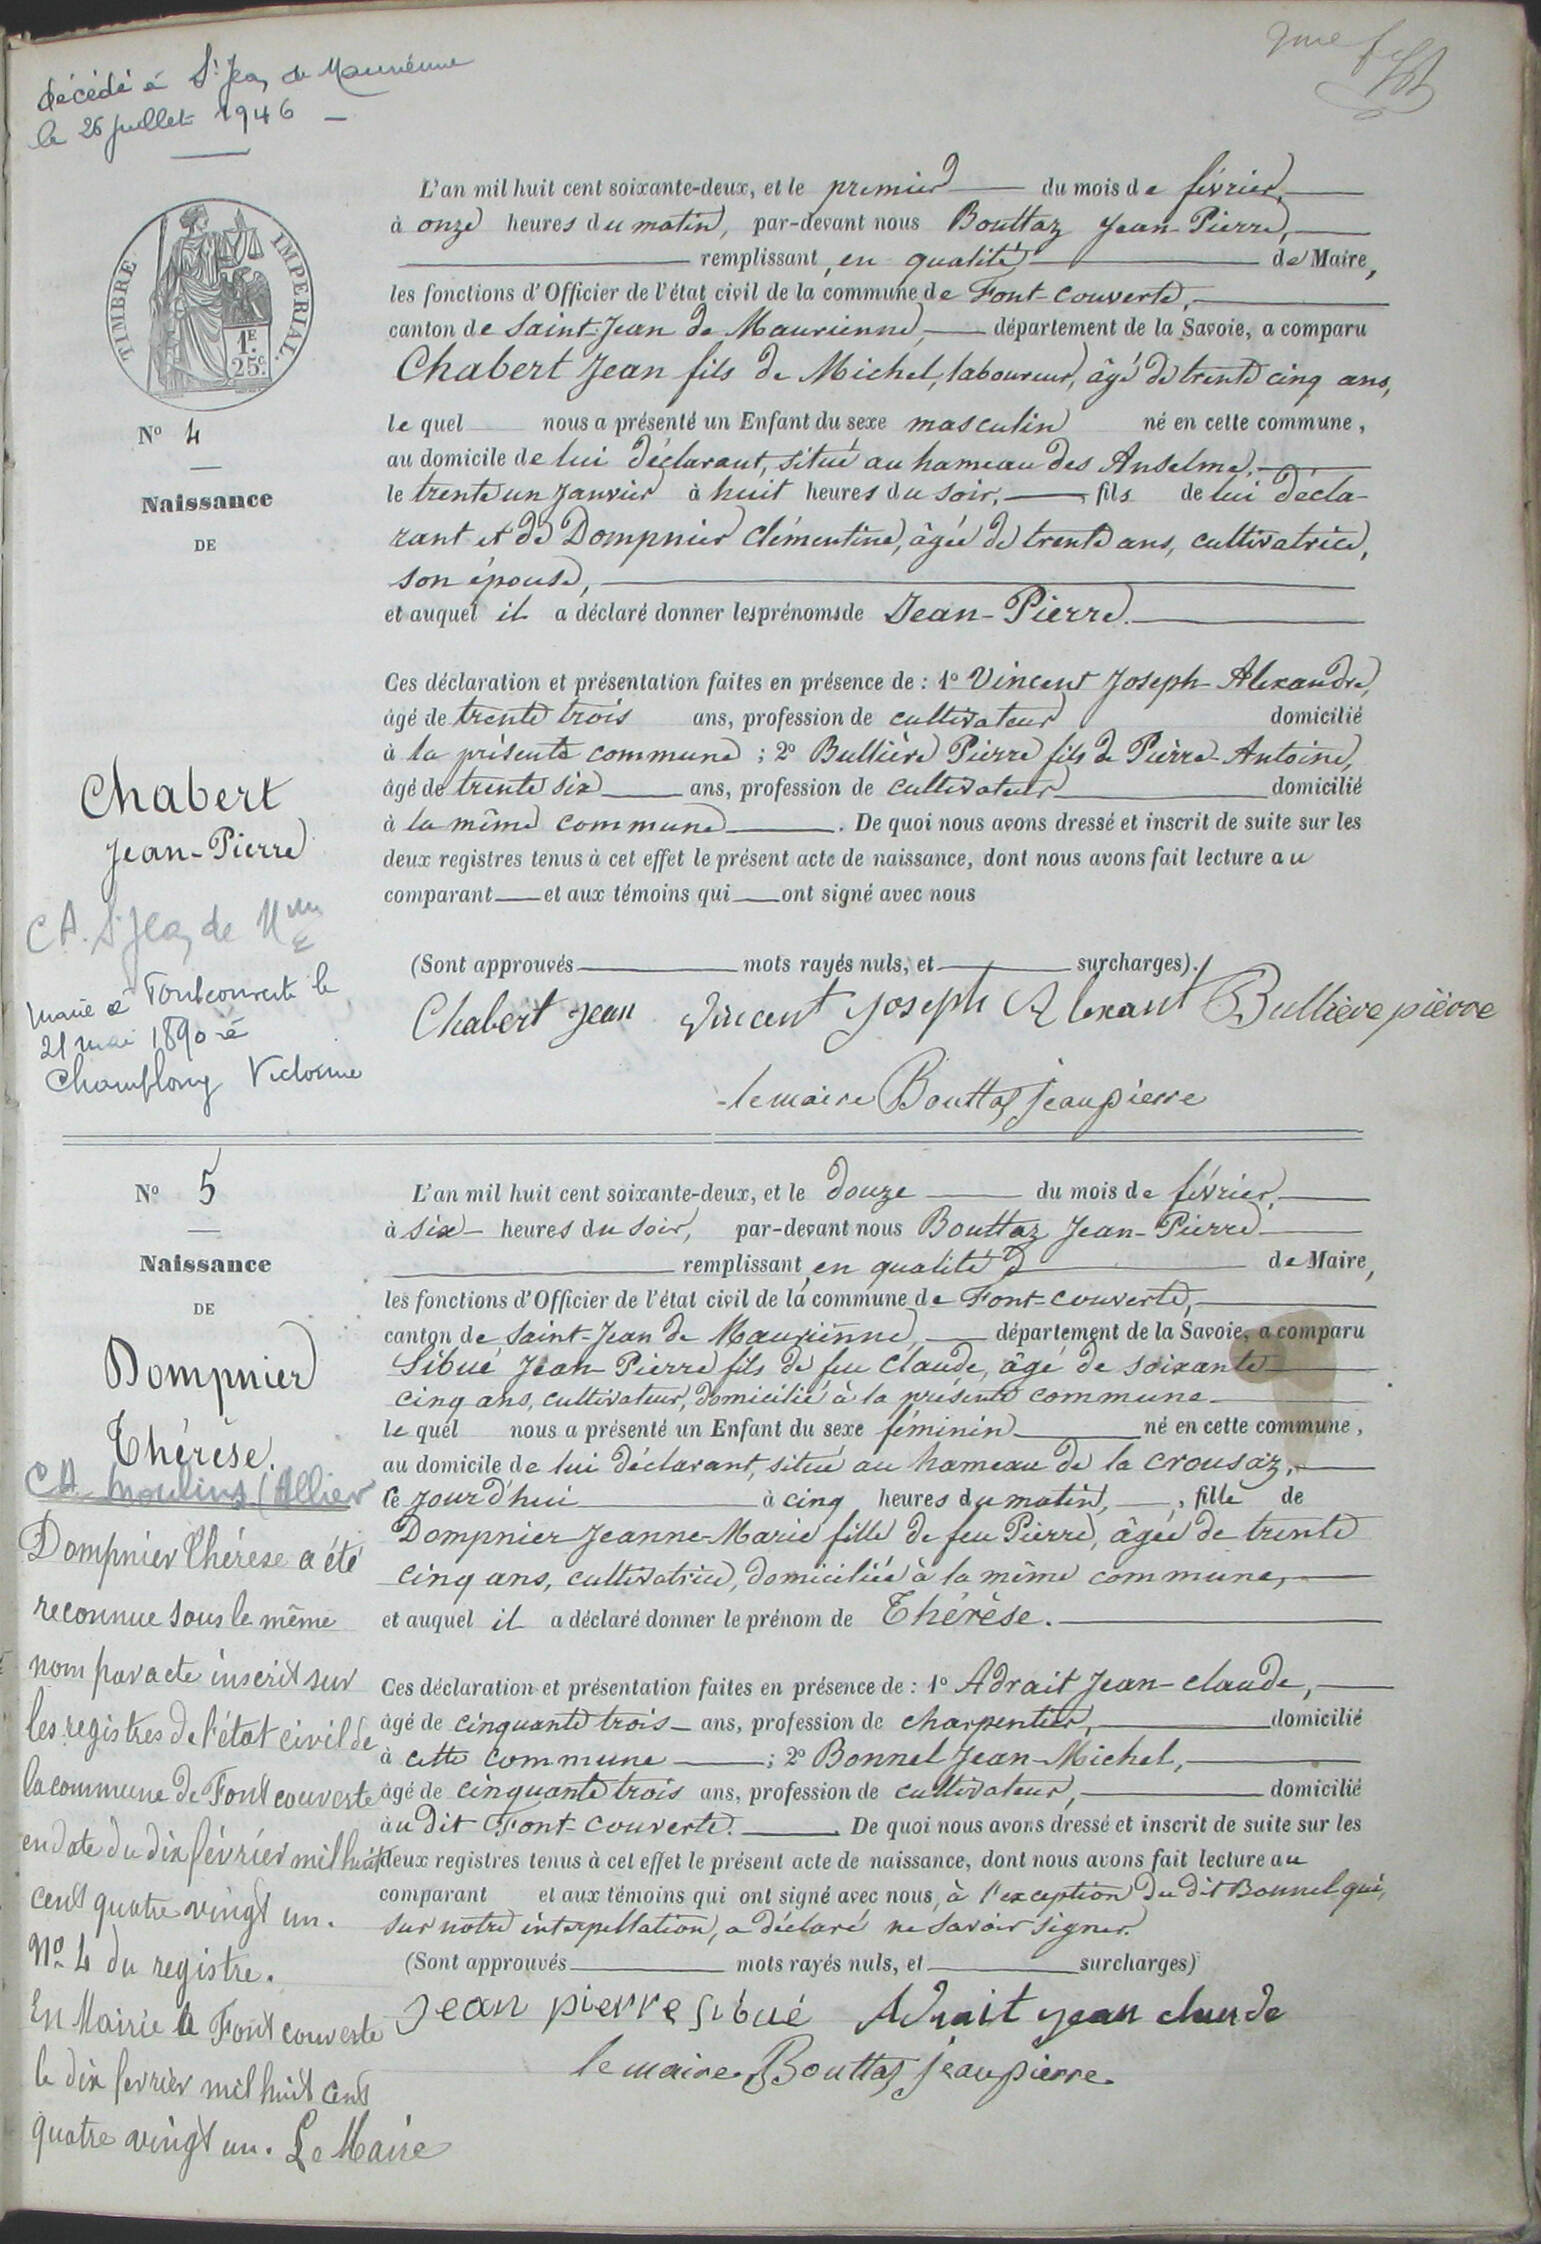 décédé à St Jean de Maurienne
le 26 juillet 1946 —
2me f
TIMBRE IMPERIAL.
1E.
25c.
No 4
Naissance
DE
Chabert
Jean-Pierre
C A. St Jean de Mnne
Marié à Fontcouverte le
21 mai 1890 à
Champlong Victorine
L'an mil huit cent soixante-deux, et le premier du mois de février,
à onze heures du matin, par-devant nous Bouttaz Jean-Pierre,
remplissant, en qualité de Maire,
les fonctions d'Officier de l'état civil de la commune de Font-couverte,
canton de Saint-Jean de Maurienne, département de la Savoie, a comparu
Chabert Jean fils de Michel, laboureur, âgé de trente cinq ans,
le quel nous a présenté un Enfant du sexe masculin né en cette commune,
au domicile de lui déclarant, situé au hameau des Anselme,
le trente un janvier à huit heures du soir, fils de lui décla-
rant et de Dompnier Clémentine, âgée de trente ans, cultivatrice,
son épouse,
et auquel il a déclaré donner les prénoms de Jean-Pierre.
Ces déclaration et présentation faites en présence de : 1o Vincent Joseph-Alexandre,
âgé de trente trois ans, profession de cultivateur domicilié
à la présente commune ; 2o Bullière Pierre fils de Pierre-Antoine,
âgé de trente six ans, profession de cultivateur domicilié
à la même commune. De quoi nous avons dressé et inscrit de suite sur les
deux registres tenus à cet effet le présent acte de naissance, dont nous avons fait lecture au
comparant et aux témoins qui ont signé avec nous
(Sont approuvés mots rayés nuls, et surcharges).
Chabert Jean Vincent Joseph Alexant Bullieve pièrre
le maire Bouttaz jeanpierre
No 5
Naissance
DE
Dompnier
Thérèse.
CA Moulins (Allier
Dompnier Thérèse a été
reconnue sous le même
nom par acte inscrit sur
les registres de l'état civil de
la commune de Font couverte
en date du dix février mil huit
cent quatre vingt un.
No 4 du registre.
En Mairie à Font couverte
le dix fevrier mil huit cent
quatre vingt un. Le Maire
L'an mil huit cent soixante-deux, et le douze du mois de février,
à six heures du soir, par-devant nous Bouttaz Jean-Pierre
remplissant, en qualité de Maire,
les fonctions d'Officier de l'état civil de la commune de Font-couverte,
canton de Saint-Jean de Maurienne, département de la Savoie, a comparu
Sibué Jean-Pierre fils de feu Claude, âgé de soixante
cinq ans, cultivateur, domicilié à la présente commune
le quel nous a présenté un Enfant du sexe féminin né en cette commune,
au domicile de lui déclarant, situé au hameau de la crousaz,
ce jourd'hui à cinq heures du matin, , fille de
Dompnier Jeanne-Marie fille de feu Pierre, âgée de trente
cinq ans, cultivatrice, domiciliée à la même commune,
et auquel il a déclaré donner le prénom de Thérèse.
Ces déclaration et présentation faites en présence de : 1o Adrait Jean-claude,
âgé de cinquante trois ans, profession de charpentier, domicilié
à cette commune ; 2o Bonnel Jean-Michel,
âgé de cinquante trois ans, profession de cultivateur, domicilié
au dit Font-couverte. De quoi nous avons dressé et inscrit de suite sur les
deux registres tenus à cet effet le présent acte de naissance, dont nous avons fait lecture au
comparant et aux témoins qui ont signé avec nous, à l'exception du dit Bonnel qui,
sur notre interpellation, a déclaré ne savoir signer.
(Sont approuvés mots rayés nuls, et surcharges)
Jean pierre sibué Adrait jean claude
le maire Bouttaz jeanpierre